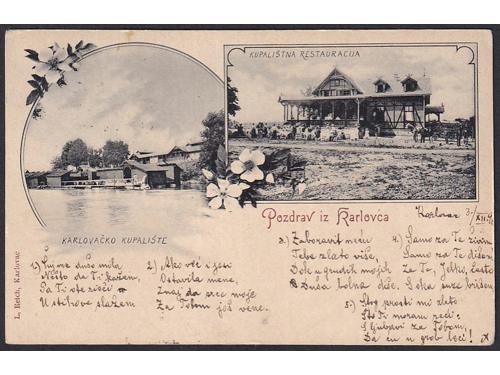 KUPALIŠTNA RESTAURACIJA
KARLOVAČKO KUPALIŠTE
Pozdrav iz Karlovca
Karlovac 3/XII
L. Reich, Karlovac
1.) dušo mila
Nešto da Ti kažem,
Pa Ti ote riječi
U stihove slažem
2.) Ako već i jesi
Ostavila mene,
Znaj da srce moje
Za Tobom još vene.
3.) Zaboravit neću
Tebe zlato više,
Dok u grudih mojih
Duša bolna diše.
4.) Samo za Te živim
Samo za Te dišem
Za Te, Jelko, često
I oka suze brišem
5.) prosti mi zlato
Što Ti moram reći:
S ljubavi za Tobom,
Da ću u grob leći!